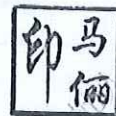 马俪
印